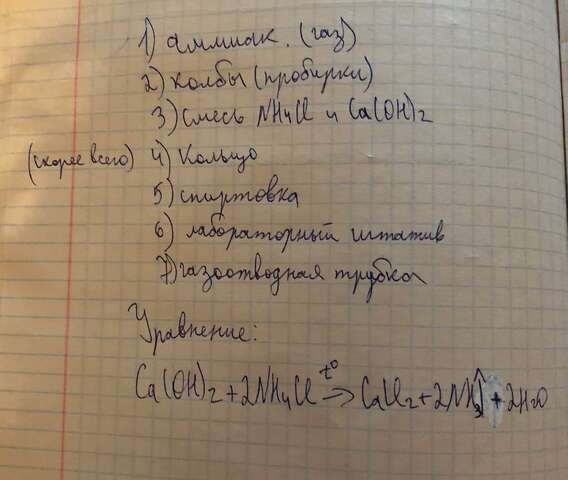 1) аммиак. (газ)
2) колбы (пробирки)
3) смесь NH4Cl и Ca(OH)2
(скорее всего) 4) кольцо
5) спиртовка
6) лабораторный штатив
7) газоотводная трубка
Уравнение:
Ca(OH)2 + 2NH4Cl t° → CaCl2 + 2NH3↑ + 2H2O